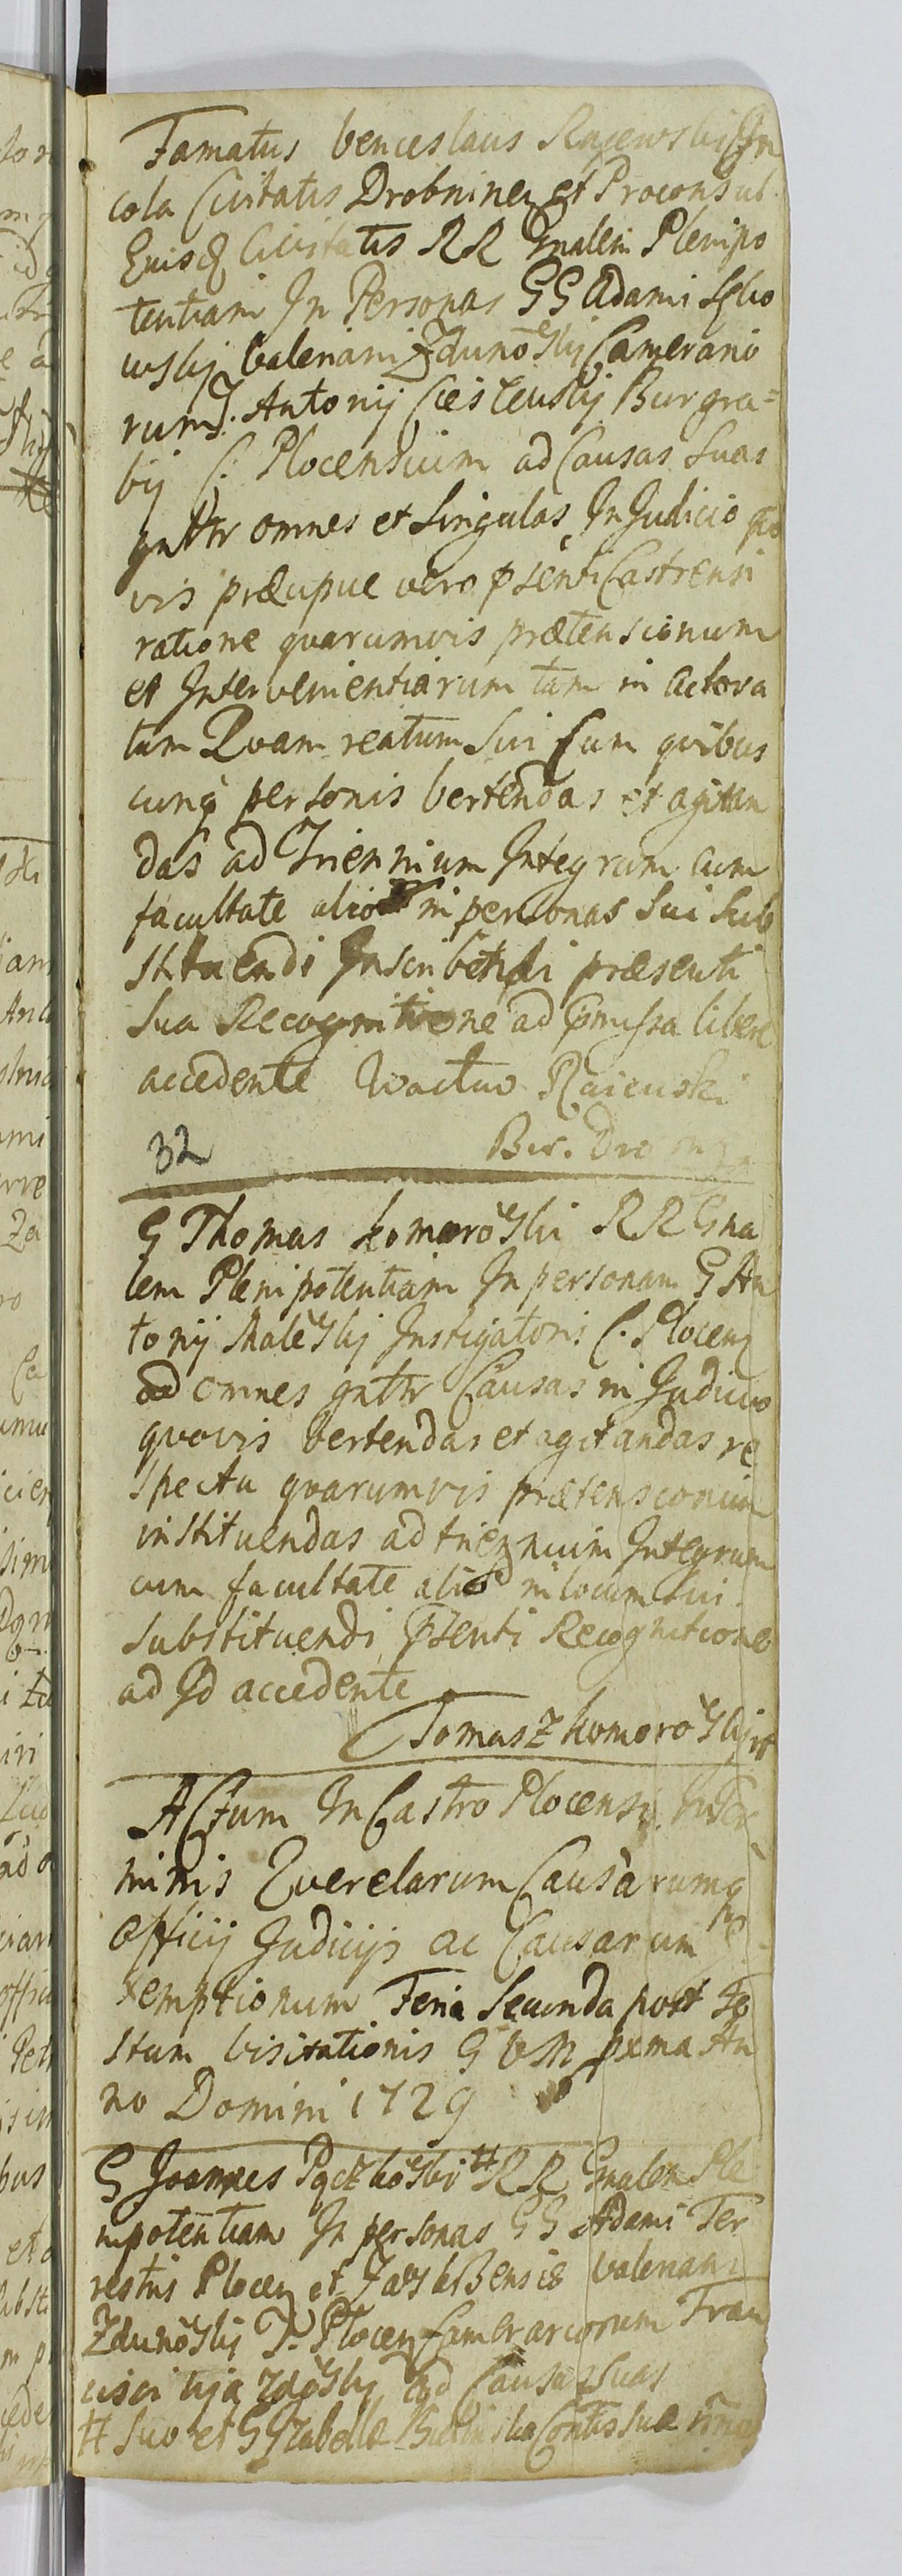 Famatus Venceslaus Rajewski In
cola Civitatis Drobninen et Proconsul
Eiusq Civitatis RR Gnalem Plenipo
tentiam In Personas GG Adami
wskij Valeriani Zdunoskij Camerario
rum T. Antonij Ciesleuskij Burgra=
bij C. Plocensium ad Causas Suas
gnttr omnes et Singulas In Judicio quo
vis præcipue vero psenti Castrensi
ratione quarumvis prætensionum
et Intervenientiarum tam in actora
tum Quam reatum Sui Cum quibus
cunq personis vertendas et agitan
das ad Triennium Integrum cum
facultate alio in personas Sui Sub
stituendi Inscribendi præsenti
Sua Recognitione ad præmissa libere
accedente Wactaw Raiewski
32 Bur.
G Thomas Komaroski RR Gna
lem Plenipotentiam In personam G An
tonij Maleskij Instigatoris C. Plocen
ad omnes gnttr Causas in Judicio
quovis vertendas et agitandas re
spectu quarumvis prætensionum
instituendas ad triennium Integrum
cum facultate alio in locum Sui
Substituendi psenti Recognitione
ad Id accedente
Tomasz Komoroskij
Actum In Castro Plocensi In Ter
minis Querelarum Causarumq
Officij Judicijs ac Causarum
temptionum Feria Secunda post Fe
stum Visitationis G V M pxma An
no Domini 1729
G Joannes # RR Gnalem Ple
nipotentiam In personas GG Adami Ter
restris Plocen et Valeriani
Zdunoskij T. Plocen Camerariorum Fran
cisci Ujazdoskij ad Causas Suas
# Suo et G Izabellæ